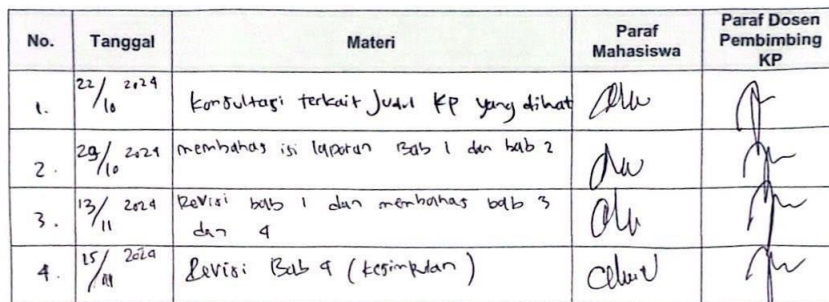 No. Tanggal Materi Paraf Mahasiswa Paraf Dosen Pembimbing KP
1. 22/10 2024 Konsultasi terkait Judul KP yang dibuat
2. 29/10 2024 membahas isi laporan Bab 1 dan bab 2
3. 13/11 2024 Revisi bab 1 dan membahas bab 3
dan 4
4. 15/11 2024 Revisi Bab 4 (kesimpulan)